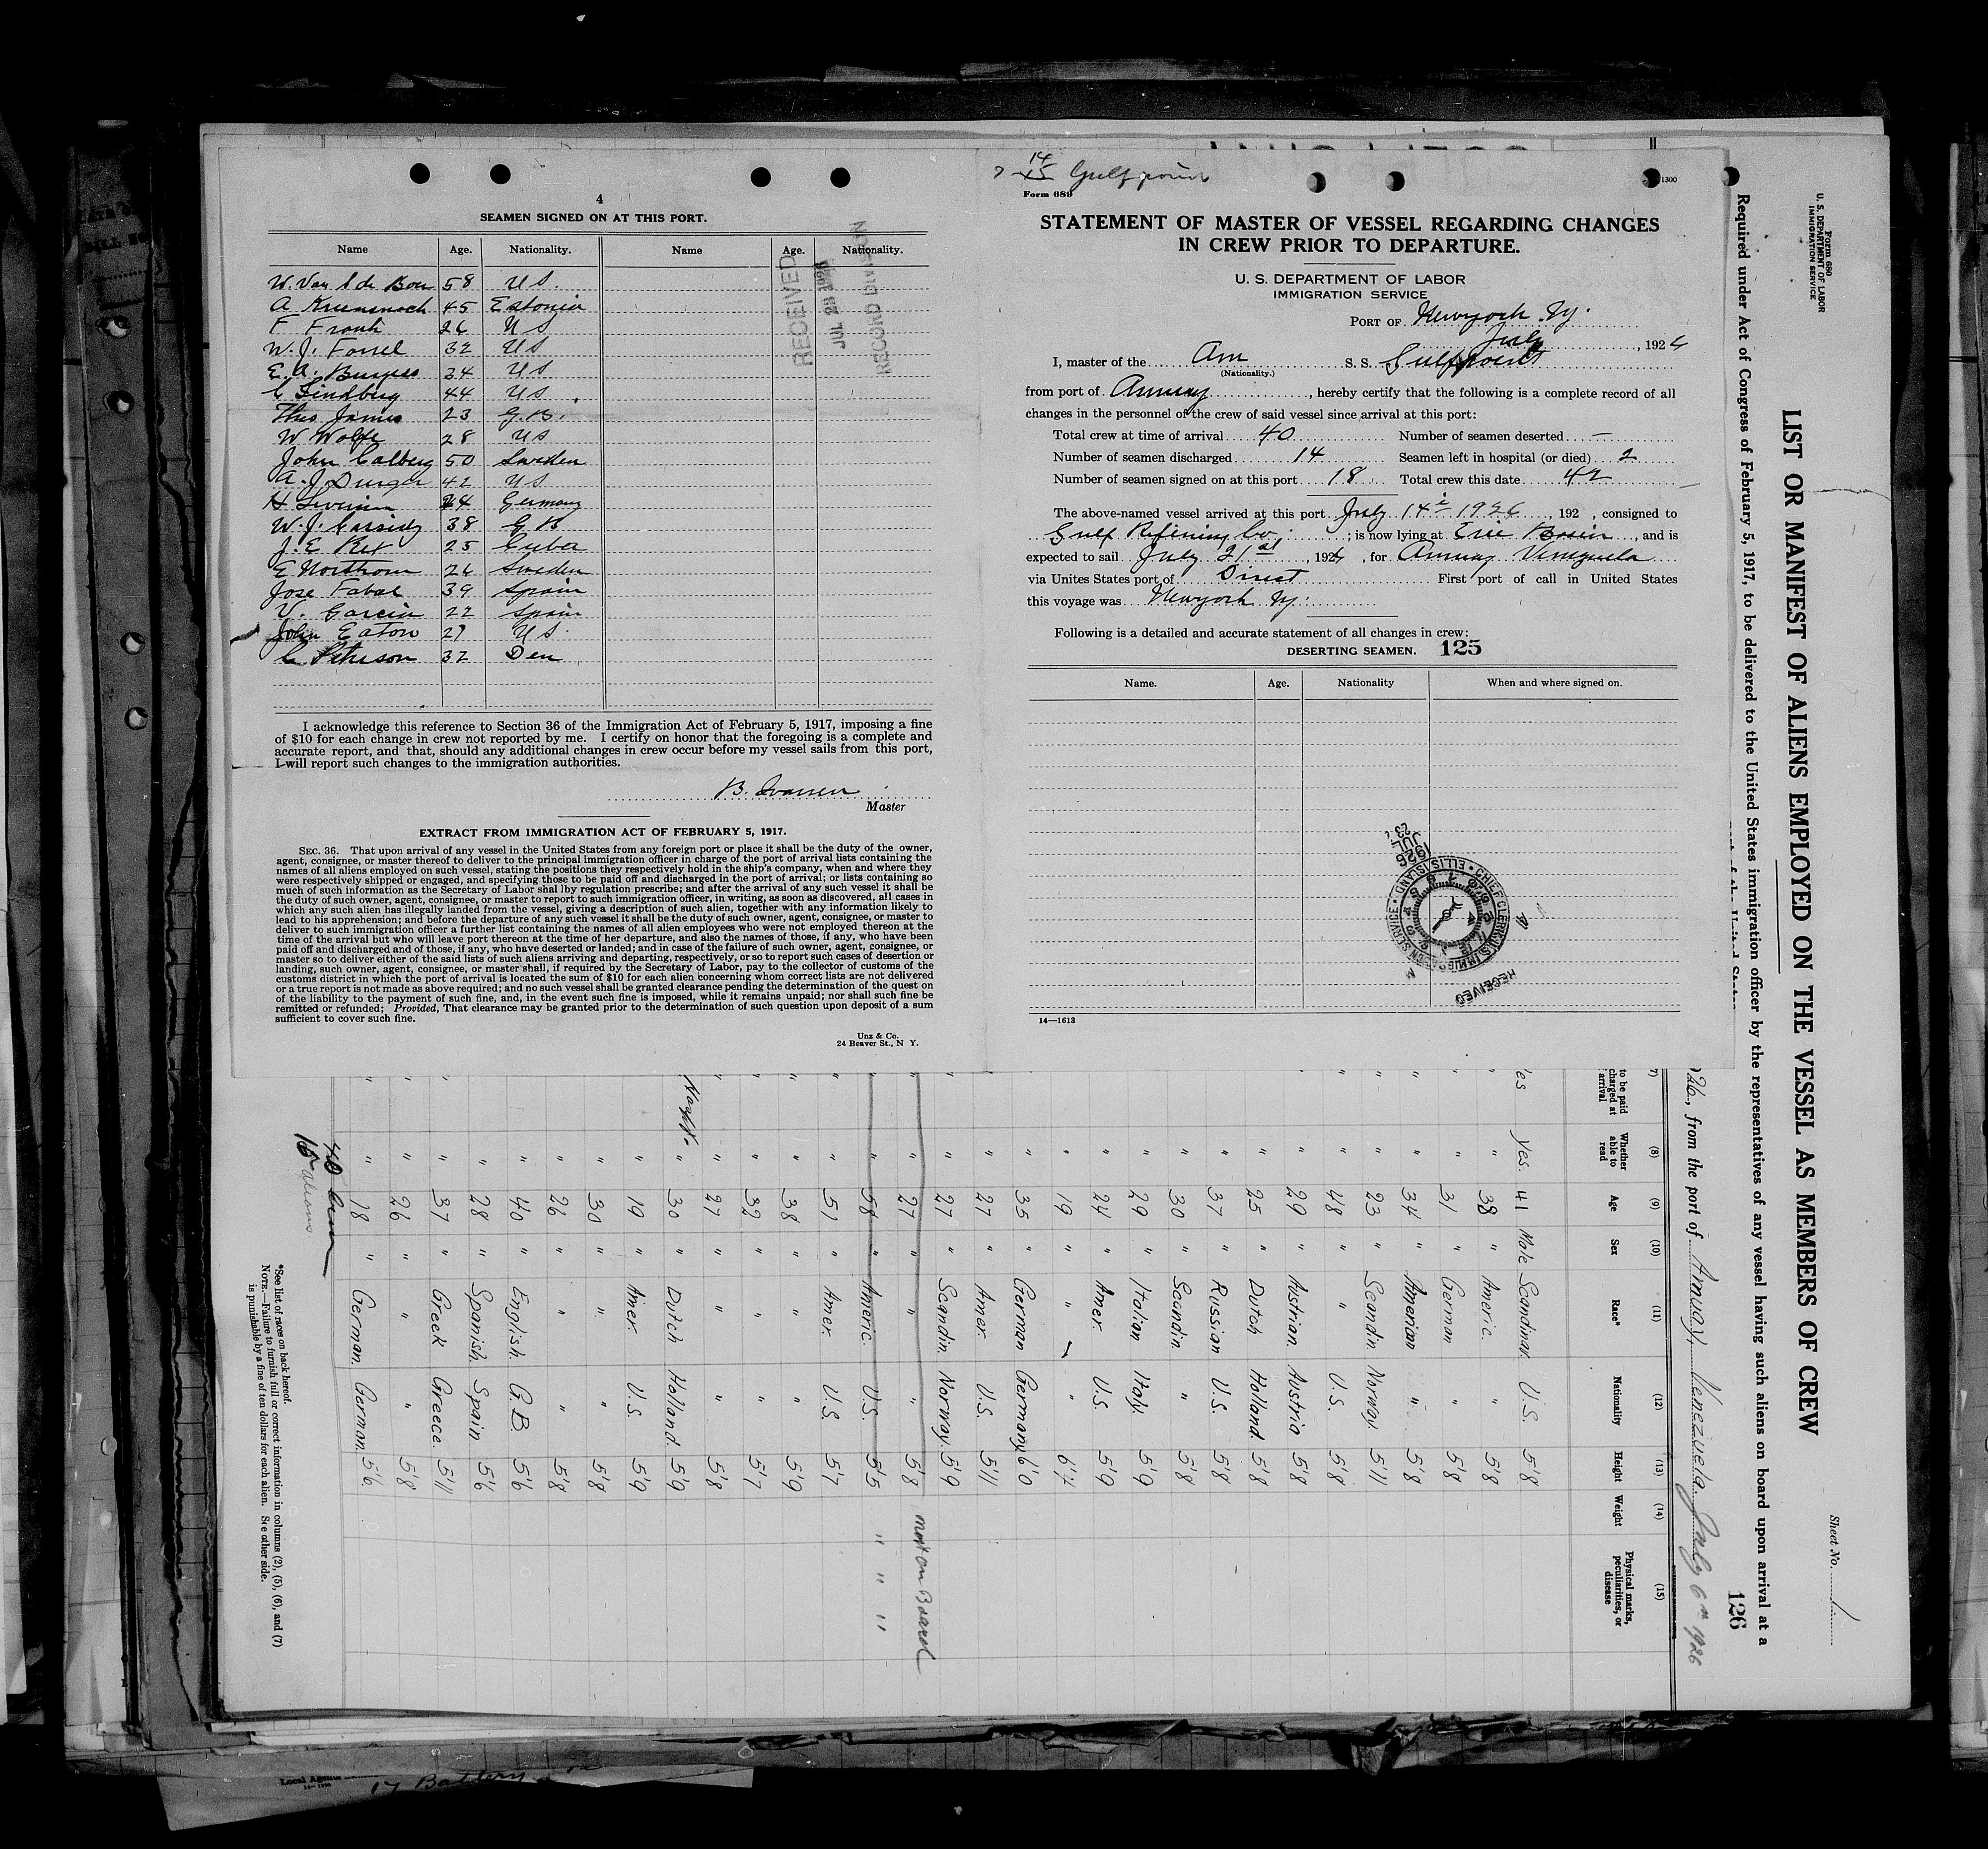 4
SEAMEN SIGNED ON AT THIS PORT.
Name Age. Nationality. Name Age. Nationality.
58 U S.
A 45 Estonia
F Frank 26 U S
W. J. Farrel 32 U S
E. A. Burgess 34 U S
C Lindberg 44 U S
Theo James 23 G. B.
W Wolfe 28 U S
John Calberg 50 Sweden
A. J. 42 U S
H 44 Germany
W. J. Cassidy 38 G B
J. E Rex 25 Cuba
E Nortrom 26 Sweden
Jose Fabal 39 Spain
V. Garcia 22 Spain
John Eaton 27 U S.
C Peterson 32 Den
RECEIVED
JUL 23 1926
RECORD DIVISION
I acknowledge this reference to Section 36 of the Immigration Act of February 5, 1917, imposing a fine
of $10 for each change in crew not reported by me. I certify on honor that the foregoing is a complete and
accurate report, and that, should any additional changes in crew occur before my vessel sails from this port,
I will report such changes to the immigration authorities.
B.
Master
EXTRACT FROM IMMIGRATION ACT OF FEBRUARY 5, 1917.
SEC. 36. That upon arrival of any vessel in the United States from any foreign port or place it shall be the duty of the owner,
agent, consignee, or master thereof to deliver to the principal immigration officer in charge of the port of arrival lists containing the
names of all aliens employed on such vessel, stating the positions they respectively hold in the ship's company, when and where they
were respectively shipped or engaged, and specifying those to be paid off and discharged in the port of arrival; or lists containing so
much of such information as the Secretary of Labor shal lby regulation prescribe; and after the arrival of any such vessel it shall be
the duty of such owner, agent, consignee, or master to report to such immigration officer, in writing, as soon as discovered, all cases in
which any such alien has illegally landed from the vessel, giving a description of such alien, together with any information likely to
lead to his apprehension; and before the departure of any such vessel it shall be the duty of such owner, agent, consignee, or master to
deliver to such immigration officer a further list containing the names of all alien employees who were not employed thereon at the
time of the arrival but who will leave port thereon at the time of her departure, and also the names of those, if any, who have been
paid off and discharged and of those, if any, who have deserted or landed; and in case of the failure of such owner, agent, consignee, or
master so to deliver either of the said lists of such aliens arriving and departing, respectively, or so to report such cases of desertion or
landing, such owner, agent, consignee, or master shall, if required by the Secretary of Labor, pay to the collector of customs of the
customs district in which the port of arrival is located the sum of $10 for each alien concerning whom correct lists are not delivered
or a true report is not made as above required; and no such vessel shall be granted clearance pending the determination of the quest on
of the liability to the payment of such fine, and, in the event such fine is imposed, while it remains unpaid; nor shall such fine be
remitted or refunded; Provided, That clearance may be granted prior to the determination of such question upon deposit of a sum
sufficient to cover such fine.
Unz & Co.
24 Beaver St., N Y.
7 14/15 Gulfpoint
Form 689
1300
STATEMENT OF MASTER OF VESSEL REGARDING CHANGES
IN CREW PRIOR TO DEPARTURE.
U. S. DEPARTMENT OF LABOR
IMMIGRATION SERVICE
PORT OF Newyork Ny.
July, 1926
I, master of the Am S. S. Gulfpoint
(Nationality.)
from port of Amuay, hereby certify that the following is a complete record of all
changes in the personnel of the crew of said vessel since arrival at this port:
Total crew at time of arrival 40 Number of seamen deserted —
Number of seamen discharged 14 Seamen left in hospital (or died) 2
Number of seamen signed on at this port 18 Total crew this date 42
The above-named vessel arrived at this port July 14th 1926, 192 , consigned to
Gulf Refining Co; is now lying at Erie Basin, and is
expected to sail July 21st, 1926, for Amuay Venezuela
via Unites States port of Direct First port of call in United States
this voyage was Newyork Ny.
Following is a detailed and accurate statement of all changes in crew:
DESERTING SEAMEN. 125
Name. Age. Nationality When and where signed on.
1926 JUL 23
CHIEF CLERK U.S. IMMIGRATION SERVICE ELLIS ISLAND
RECEIVED
14—1613
Form 680
U. S. DEPARTMENT OF LABOR
IMMIGRATION SERVICE
Sheet No. 1
LIST OR MANIFEST OF ALIENS EMPLOYED ON THE VESSEL AS MEMBERS OF CREW
Required under Act of Congress of February 5, 1917, to be delivered to the United States immigration officer by the representatives of any vessel having such aliens on board upon arrival at a
126
26, from the port of Amuay Venezuela July 6th 1926
(7) (8) (9) (10) (11) (12) (13) (14) (15)
to be paid charged at arrival Whether able to read Age Sex Race* Nationality Height Weight Physical marks, peculiarities, or disease
Yes Yes. 41 Male Scandinav. U.S. 5'8
" 38 " Americ. " 5'8
" " 31 " German " 5'8
" " 34 " American " 5'8
" " 23 " Scandin Norway. 5'11
" " 48 " " U.S. 5'8
" " 29 " Austrian Austria 5'8
" 25 " Dutch Holland. 5'8
" 37 " Russian U.S. 5'8
" 30 " Scandin " 5'8
" 29 " Italian Italy. 5'9
" 24 " Amer. U.S. 5'9
" 19 " " " 6'½
" 35 " German Germany 6'0
" 27 " Amer. U.S. 5'11
" " 27 " Scandin. Norway. 5'9
" " 27 " " " 5'8 not on Board
" " 58 " Americ. U.S. 5'5 " " "
" " 51 " Amer. U.S. 5'7
" " 38 " " " 5'9
" " 32 " " " 5'7
" " 27 " " " 5'8
" 30 " Dutch Holland. 5'9
" 19 " Amer. U.S. 5'9
" 30 " " " 5'8
" 26 " " " 5'8
" 40 " English. G.B. 5'6
" 28 " Spanish. Spain 5'6
" " 37 " Greek Greece. 5'11
" " 26 " " " 5'8
" " 18 " German. German. 5'6.
40 Crew
15 aliens
*See list of races on back hereof.
NOTE.—Failure to furnish full or correct information in columns (2), (5), (6), and (7)
is punishable by a fine of ten dollars for each alien. See other side.
Local Agents
17 Battery